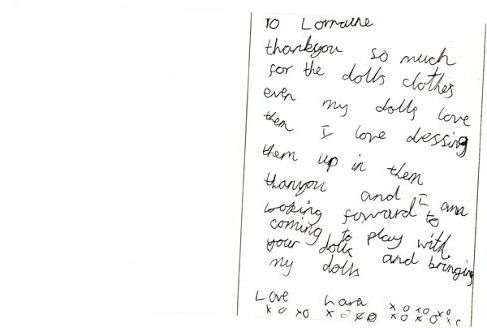 To Lorraine
thankyou so much
for the dolls clothes
even my dolls love
them I love dessing
them up in them
thanyou and I am
looking forward to
coming to play with
your dolls and bringing
my dolls
Love Lara xoxoxoxo
xoxo xoxo xoxoxoxo